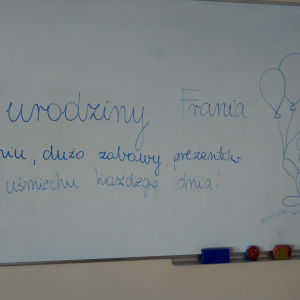 urodziny Frania
niu, dużo zabawy, prezentów
uśmiechu każdego dnia!